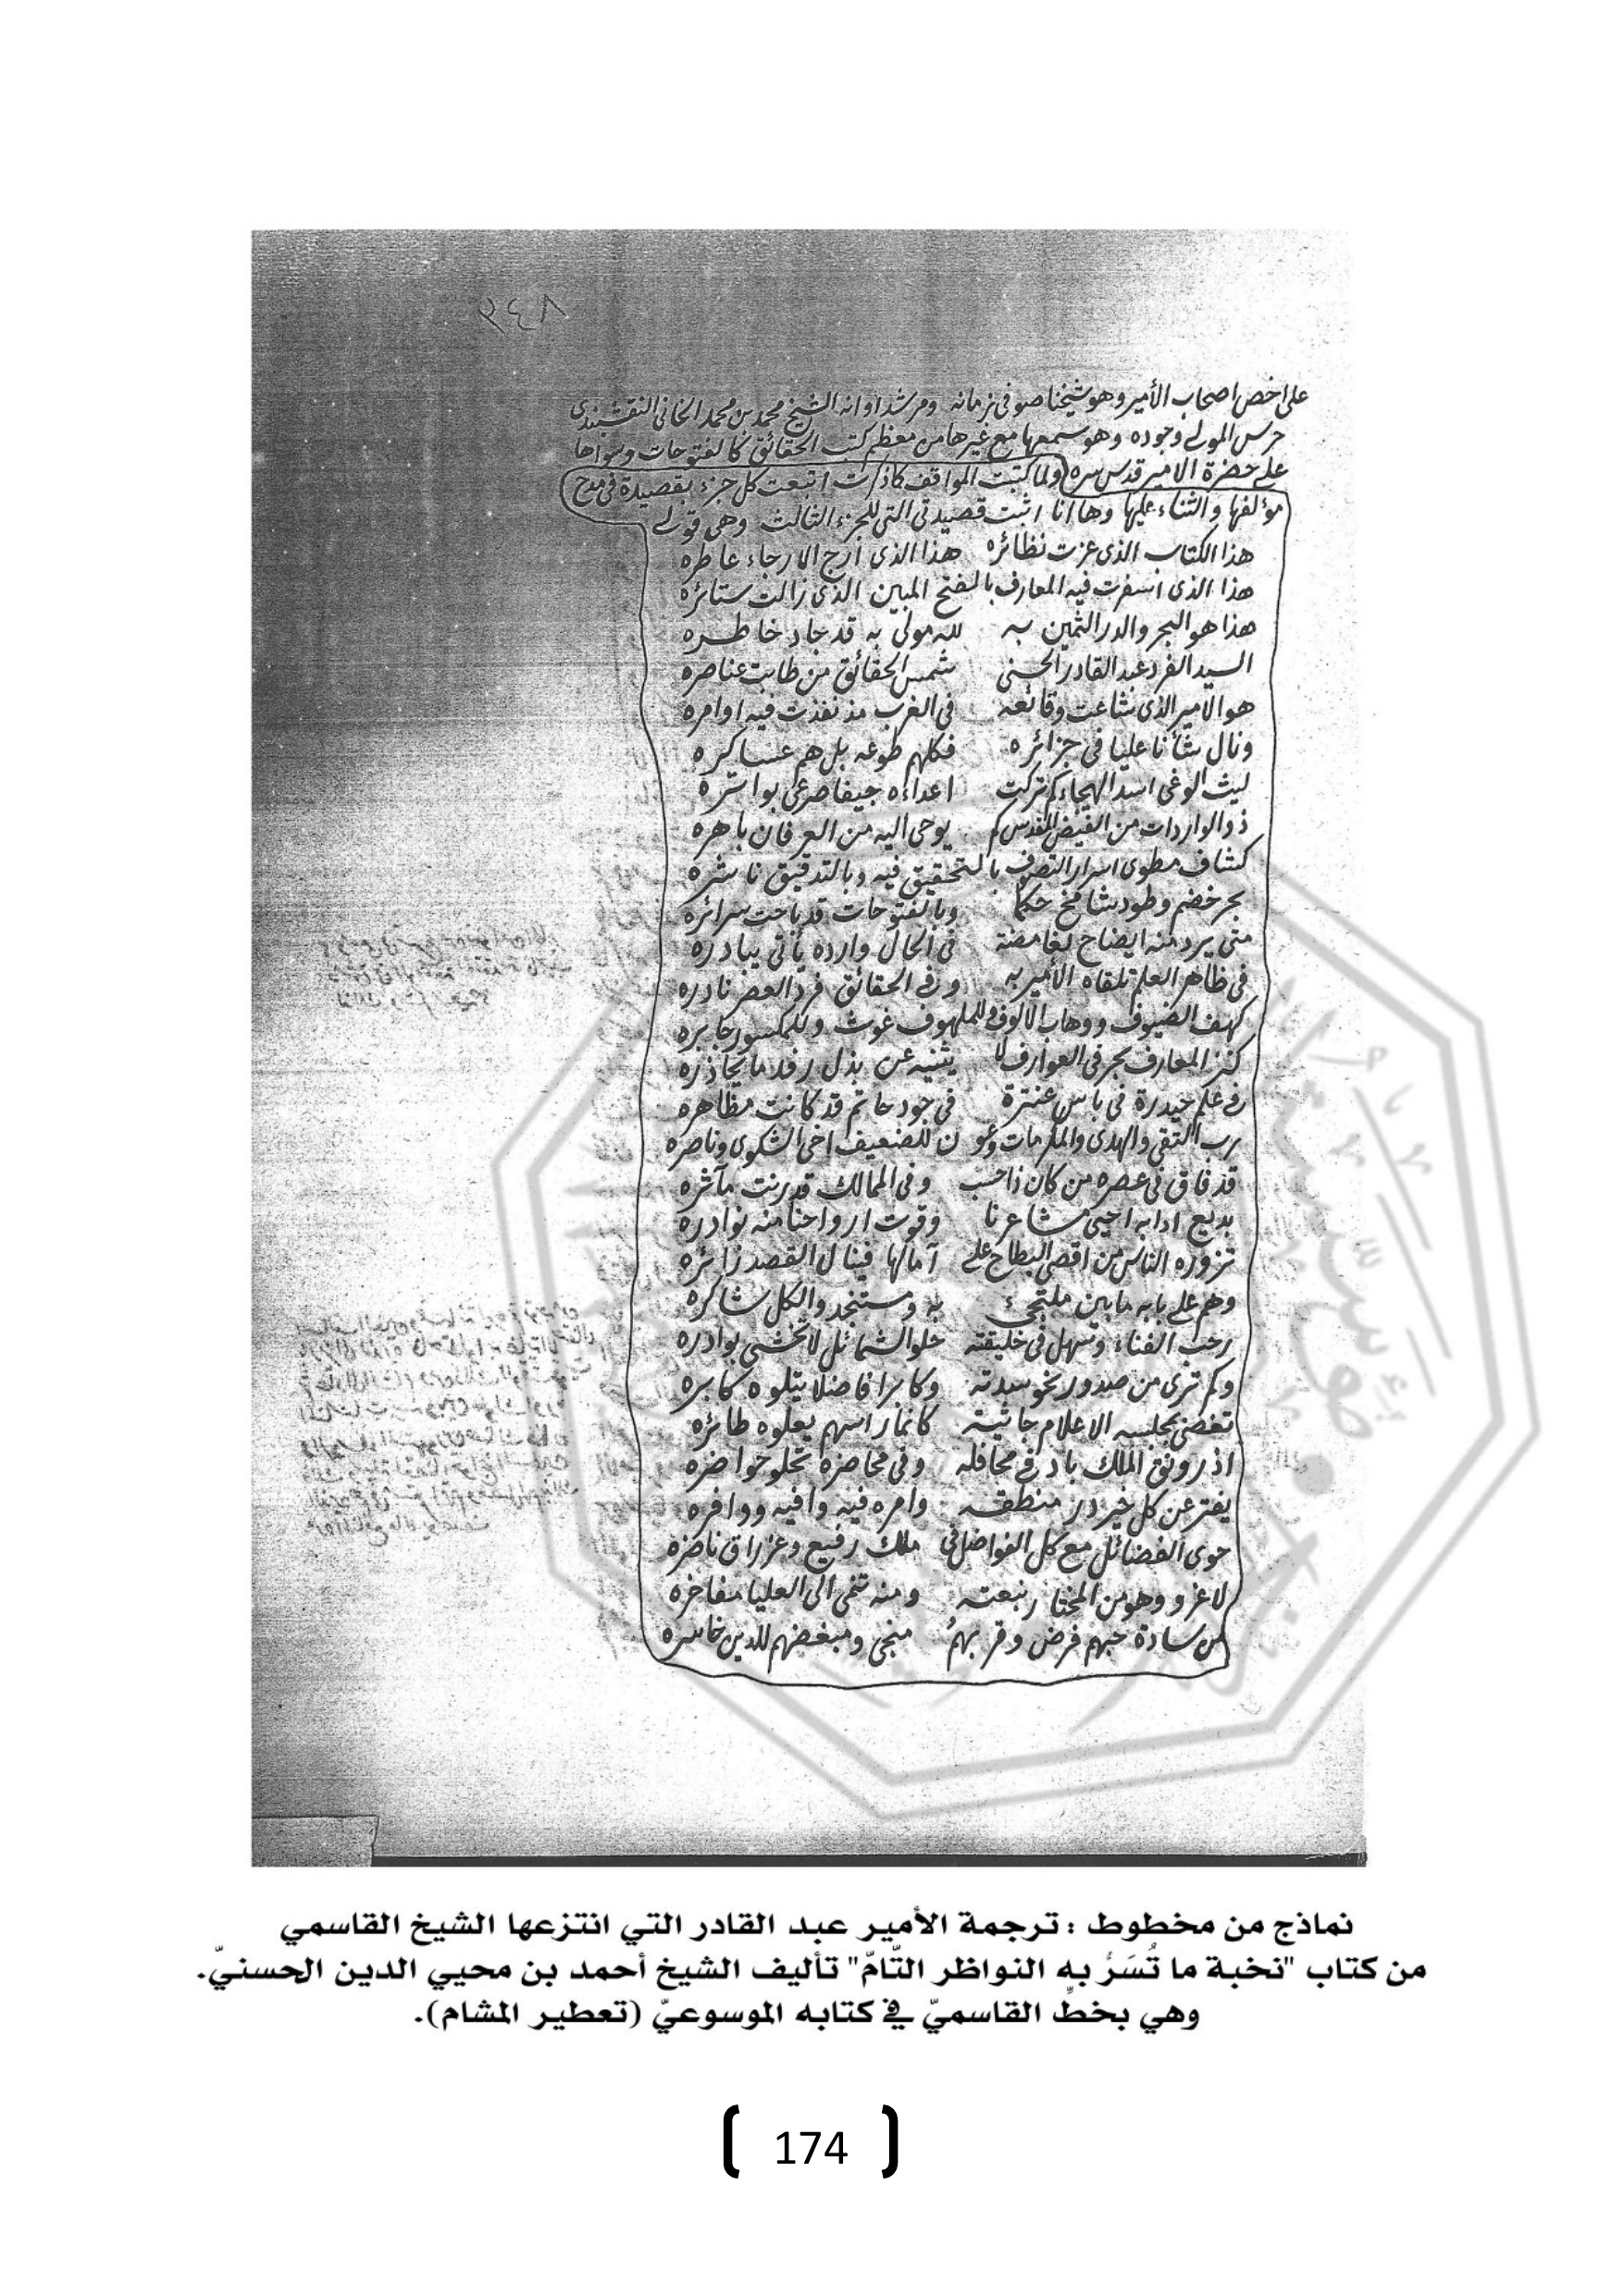 ٨٤٩
على اخص اصحاب الأمير وهو شيخنا صوفي زمانه ومرشد اوانه الشيخ محمد بن محمد الخاني النقشبندي
حرس المولى وجوده وهو سمعها مع غيرها من معظم كتب الحقائق كالفتوحات وسواها
على حضرة الامير قدس سره ولما كتبت المواقف كما ذكرت اتبعت كل جزء بقصيدة في مدح
مؤلفها والثناء عليها وها انا اثبت قصيدتي التي للجزء الثالث وهي قولي
هذا الكتاب الذي عزت نظائره هذا الذي أرج الارجاء عاطره
هذا الذي اسفرت فيه المعارف بالفتح المبين الذي زالت ستائره
هذا هو البحر والدر الثمين به لله مولى به قد جاد خاطره
السيد الفرد عبد القادر الحسني شمس الحقائق من طابت عناصره
هو الامير الذي شاعت وقائعه في الغرب مذ نفذت فيه اوامره
ونال شأنا عليا في جزائره فكلهم طوعه بل هم عساكره
ليث الوغى اسد الهيجاء كم تركت اعداءه جيفا صرعى بواتره
ذو الواردات من الفيض المقدس كم يوحى اليه من العرفان باهره
كشاف مطوى اسرار التصوف بالتحقيق فيه وبالتدقيق ناشره
بحر خضم وطود شامخ حكما وبالفتوحات قد باحت سرائره
متى يرد منه ايضاح لغامضة في الحال وارده يأتي يبادره
في ظاهر العلم تلقاه الأمير به وفي الحقائق فرد العصر نادره
كهف الضيوف ووهاب الالوف وللملهوف غوث وللمكسور جابره
كنز المعارف بحر في العوارف لا يثنيه عن بذل رفد ما يحاذره
في علم حيدرة في باس عنترة في جود حاتم قد كانت مظاهره
رب التقى والهدى والمكرمات وعون للضعيف اخي الشكوى وناصره
قد فاق في عصره من كان ذا حسب وفي الممالك قد رنت مآثره
بديع ادابه احيى مشاعرنا وقوت ارواحنا منه نوادره
تزوره الناس من اقصى البطاح على آمالها فينال القصد زائره
وهم على بابه ما بين ملتجئ به ومستنجد والكل شاكره
رحب الفناء وسهل في خليقته حلو الشمائل لا تخشى بوادره
وكم ترى من صدور نحو سدته وكابرا فاضلا يتلوه كابره
تغضي بمجلسه الاعلام جاثية كانما راسهم يعلوه طائره
اذ رونق الملك باد في محافله وفي محاضره تحلو حواضره
يفتر عن كل خير در منطقه وامره فيه وافيه ووافره
حوى الفضائل مع كل الفواضل في ملك رفيع وعز راق ناضره
لا غرو وهو من المختار نبعته ومنه تنمى الى العليا مفاخره
من سادة حبهم فرض وقربهم منجى ومبغضهم للدين خاسره
نماذج من مخطوط : ترجمة الأمير عبد القادر التي انتزعها الشيخ القاسمي
من كتاب "نخبة ما تُسَرُّ به النواظر التّامّ" تأليف الشيخ أحمد بن محيي الدين الحسنيّ.
وهي بخطِّ القاسميّ في كتابه الموسوعيّ (تعطير المشام).
174